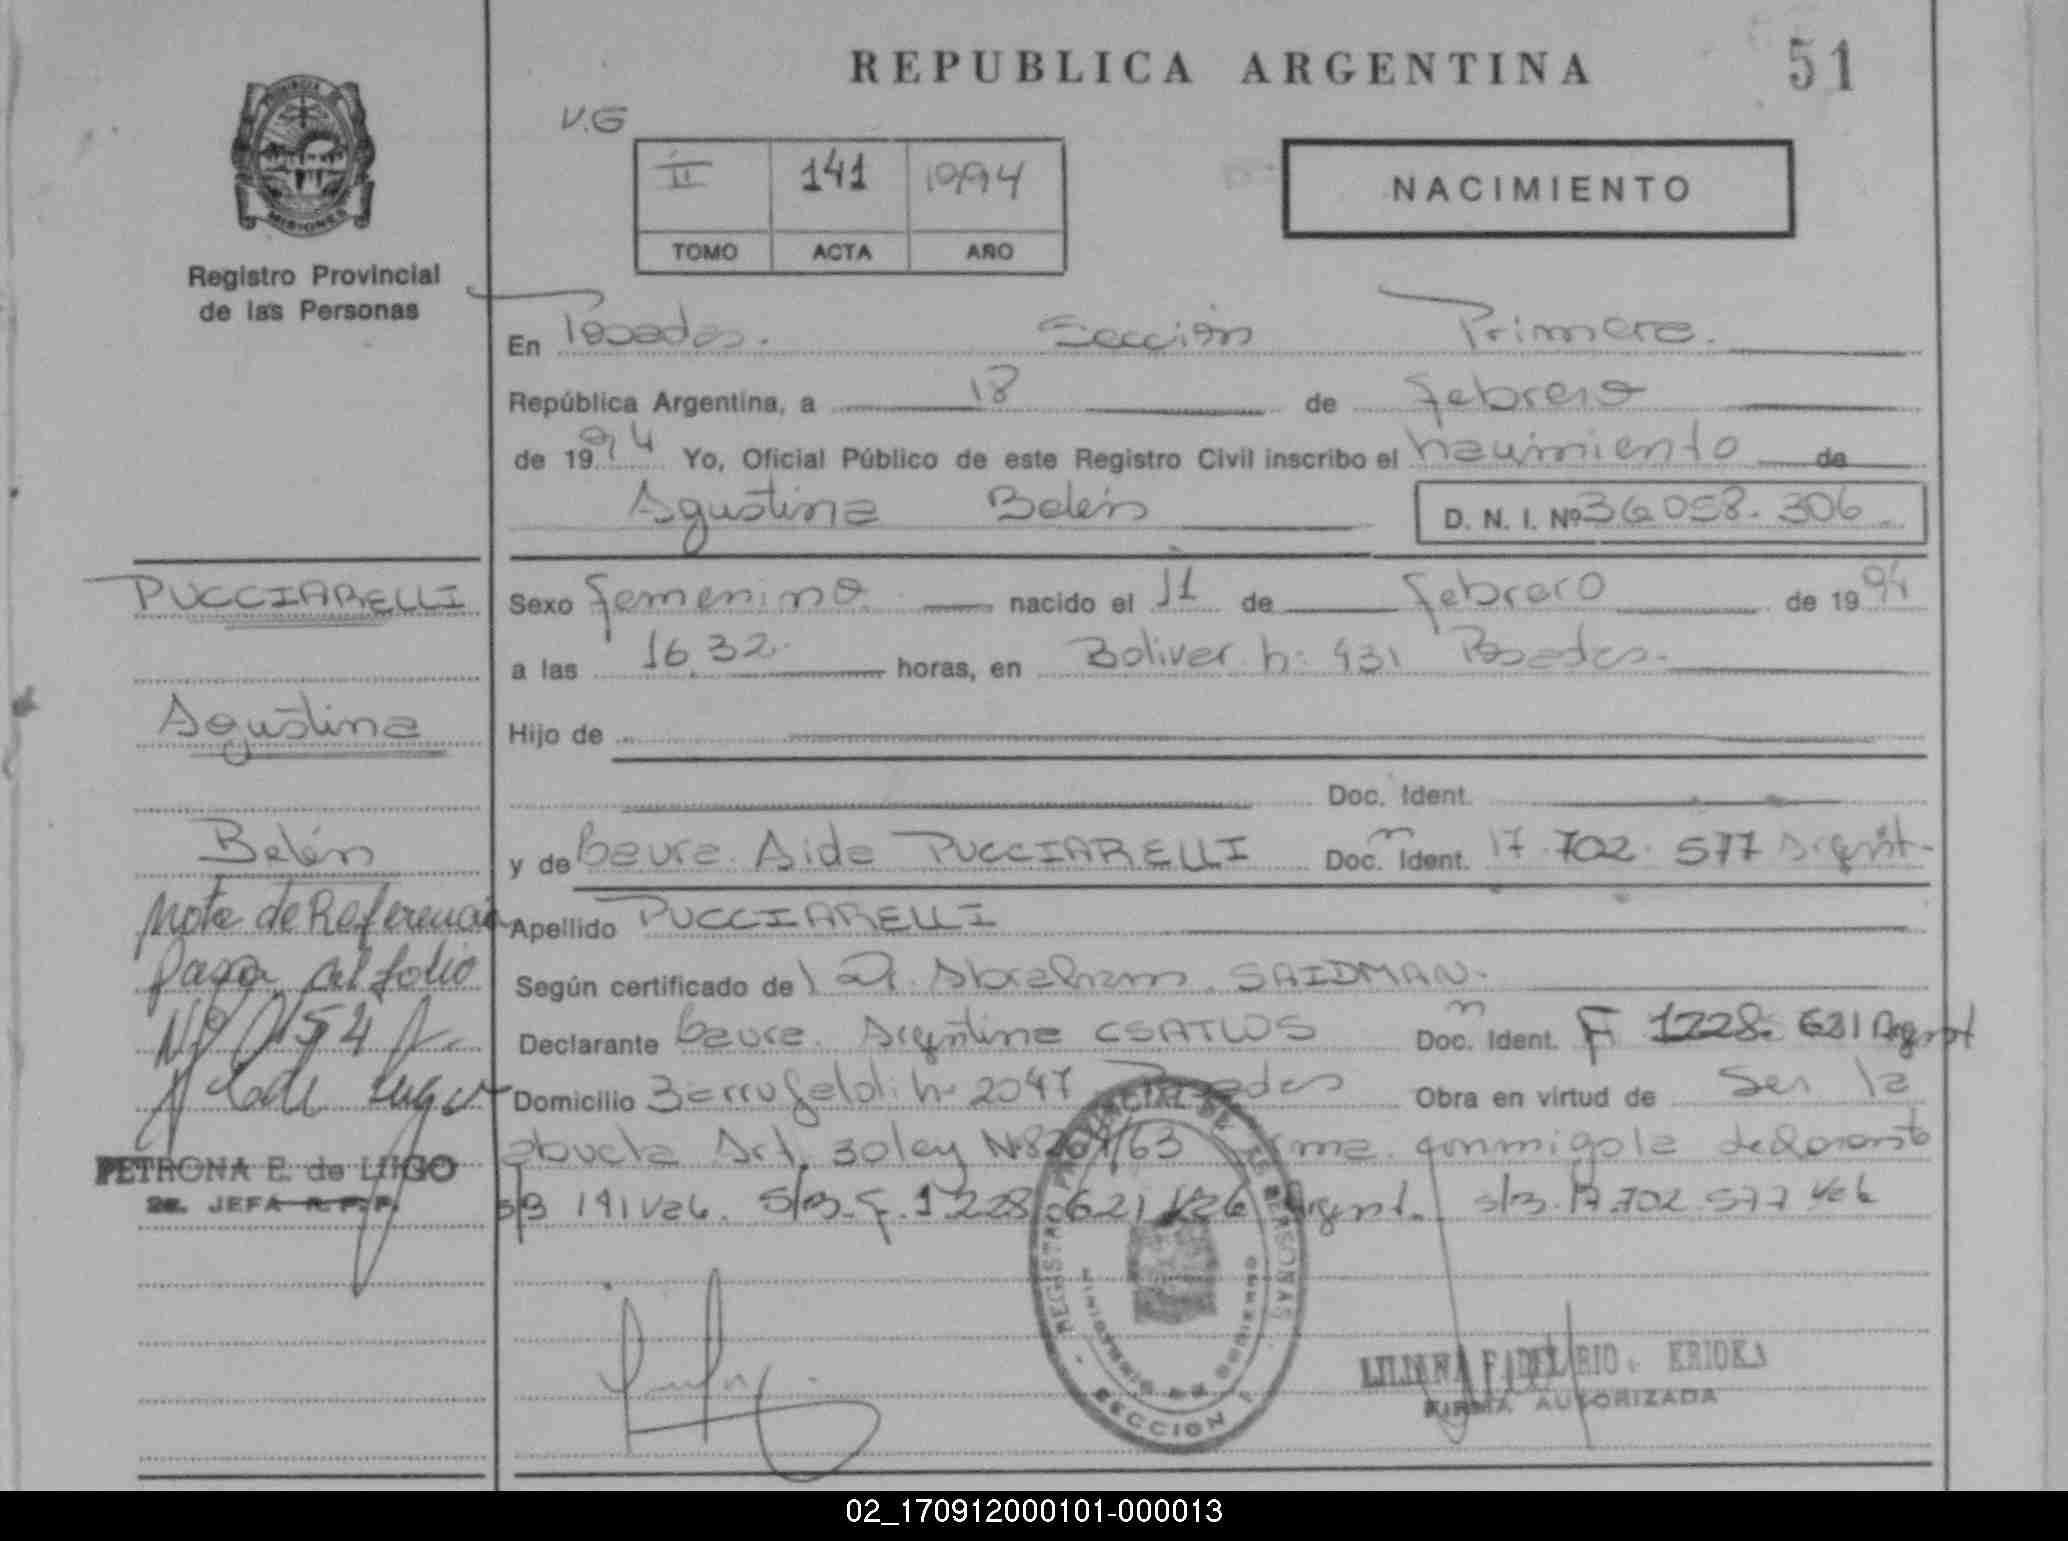 REPUBLICA ARGENTINA 51
V.G
II 141 1994
TOMO ACTA AÑO
NACIMIENTO
PROVINCIA DE
MISIONES
Registro Provincial
de las Personas
En Posadas. Sección Primera.
República Argentina, a 18 de febrero
de 1994 Yo, Oficial Público de este Registro Civil inscribo el nacimiento de
Agustina Belén D. N. I. Nº 36 058. 306
PUCCIARELLI
Sexo femenino nacido el 11 de febrero de 1994
a las 16.32. horas, en Bolivar n: 431 Posadas.
Agustina
Hijo de
Doc. Ident.
Belén
y de Laura Aida PUCCIARELLI Doc. Ident. 17.702.577 Argent.
Nota de Referencia
Apellido PUCCIARELLI
pasa al folio
Según certificado de Dr. Abraham SAIDMAN.
Nº 0154
Declarante Laura Argentina CSATLOS Doc. Ident. F 1228. 621 Argent
Domicilio n. 2047 Posadas Obra en virtud de Ser la
abuela Art. 30 ley Nº 8204/63 firma conmigo la declarante
PETRONA E. de LUGO
2a. JEFA R.P.P.
s/B 141 Vale. S/B. F. 1228 621 Vale Argent. s/B. 17.702.577 Vale
REGISTRO PROVINCIAL DE LAS PERSONAS
MINISTERIO DE GOBIERNO
SECCION 1ª
LILIANA F. DEL RIO
FIRMA AUTORIZADA
02_170912000101-000013